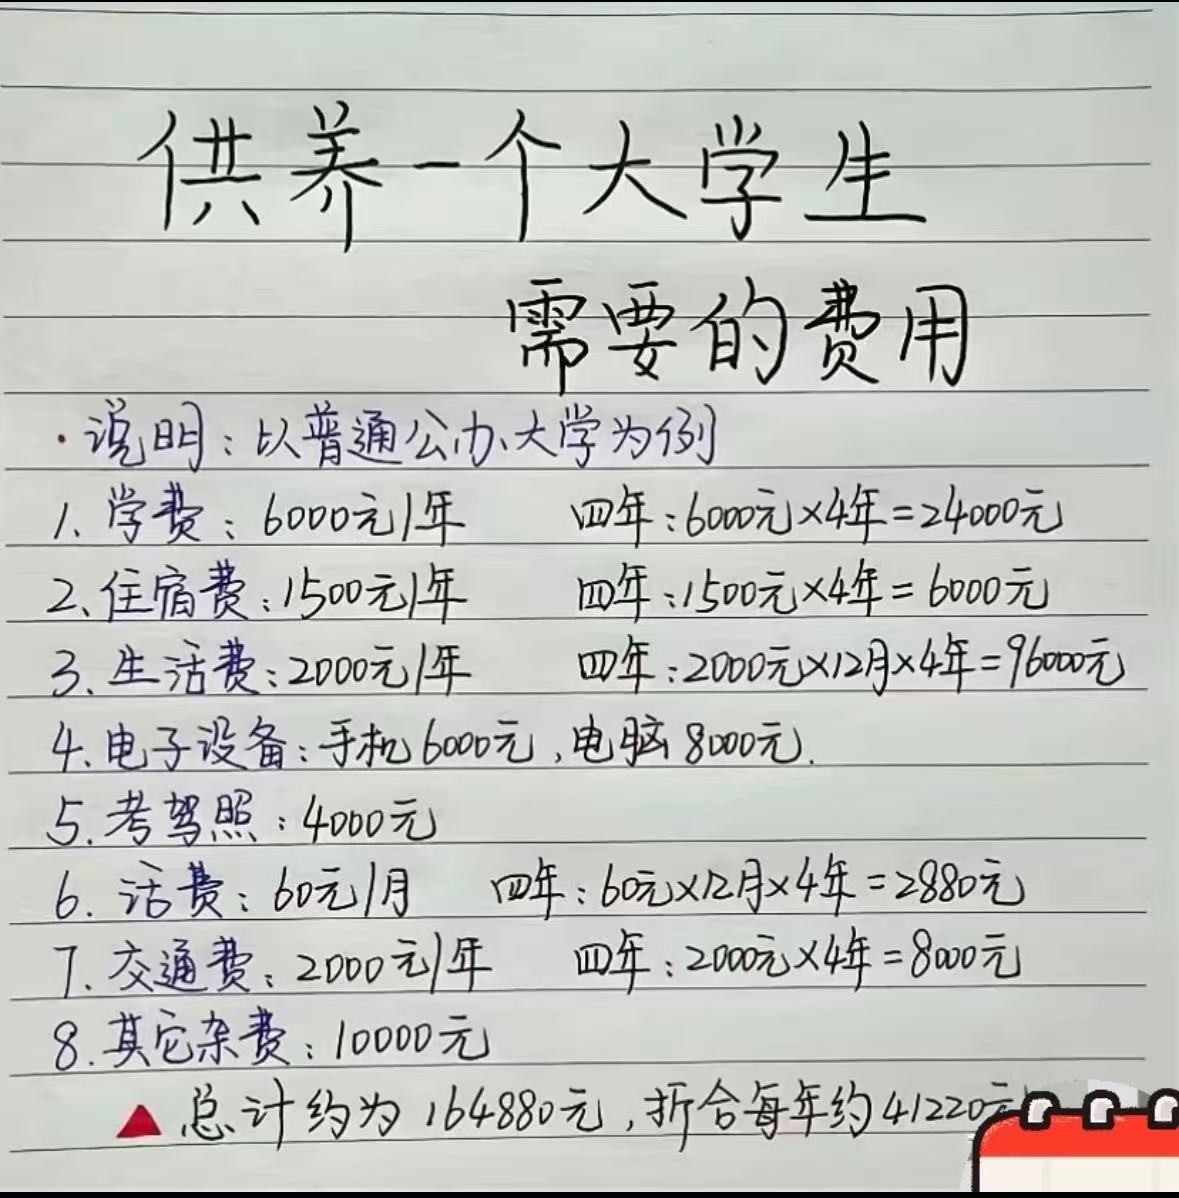 供养一个大学生
需要的费用
·说明：以普通公办大学为例
1、学费：6000元/年 四年：6000元×4年=24000元
2、住宿费：1500元/年 四年：1500元×4年=6000元
3、生活费：2000元/年 四年：2000元×12月×4年=96000元
4.电子设备：手机6000元，电脑8000元.
5.考驾照：4000元
6.话费：60元/月 四年：60元×12月×4年=2880元
7.交通费：2000元/年 四年：2000元×4年=8000元
8.其它杂费：10000元
▲总计约为164880元，折合每年约41220元